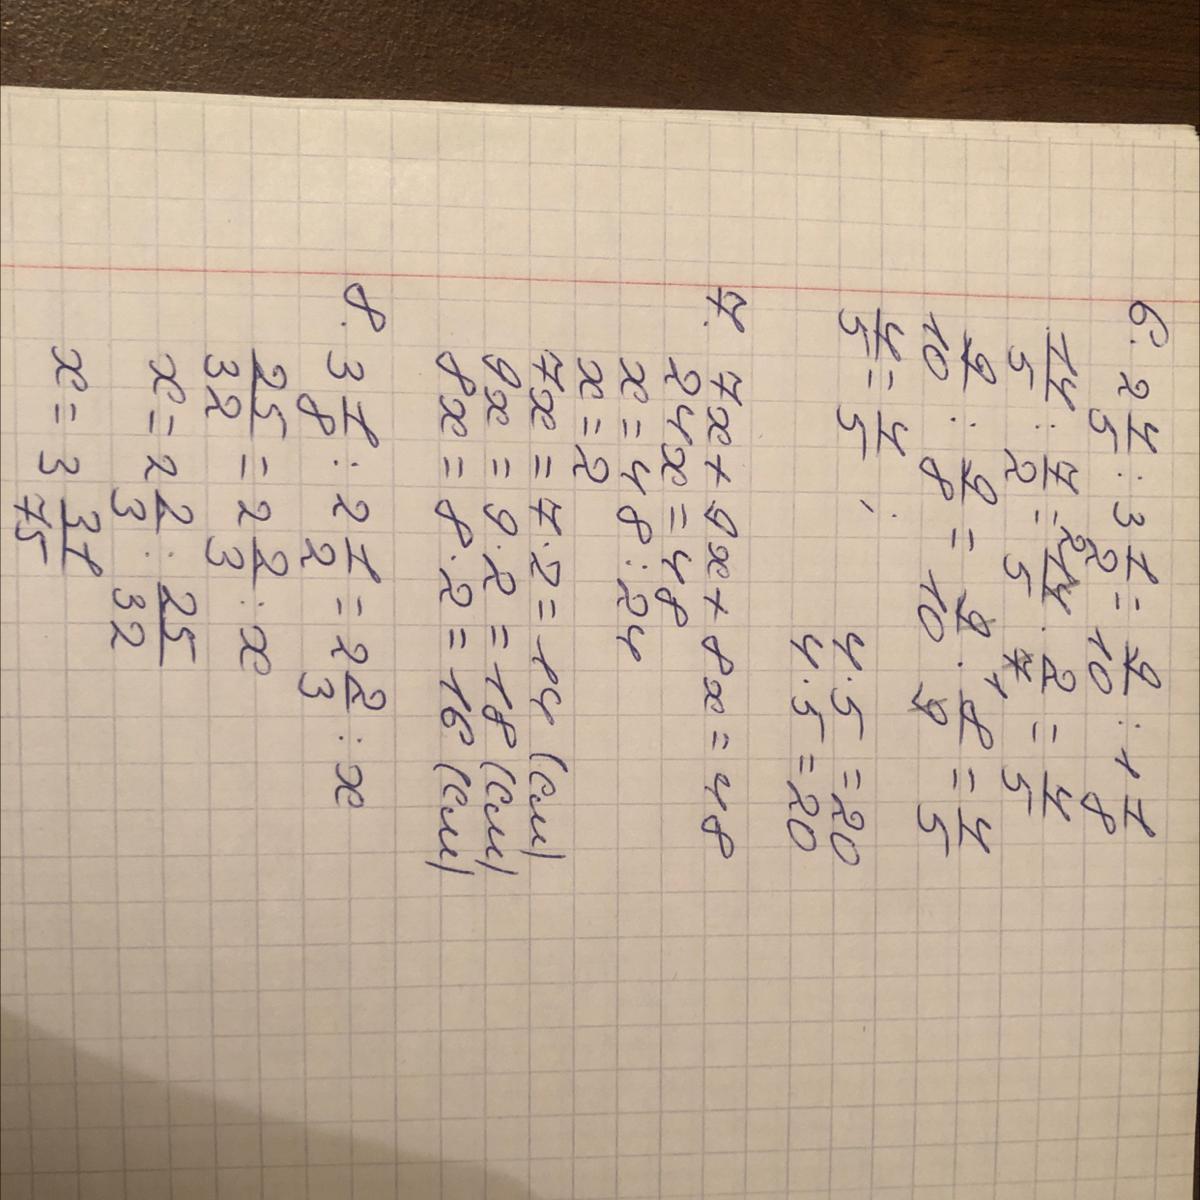 6. 2 4/5 : 3 1/2 = 9/10 : 1 1/8
14/5 : 7/2 = 14/5 · 2/7 = 4/5
9/10 : 9/8 = 9/10 · 8/9 = 4/5
4/5 = 4/5 ; 4·5=20
4·5=20
7. 7x+9x+8x=48
24x=48
x=48:24
x=2
7x=7·2=14 (см)
9x=9·2=18 (см)
8x=8·2=16 (см)
8. 3 1/8 : 2 1/2 = 2 2/3 : x
25/32 = 2 2/3 : x
x = 2 2/3 : 25/32
x = 3 31/75